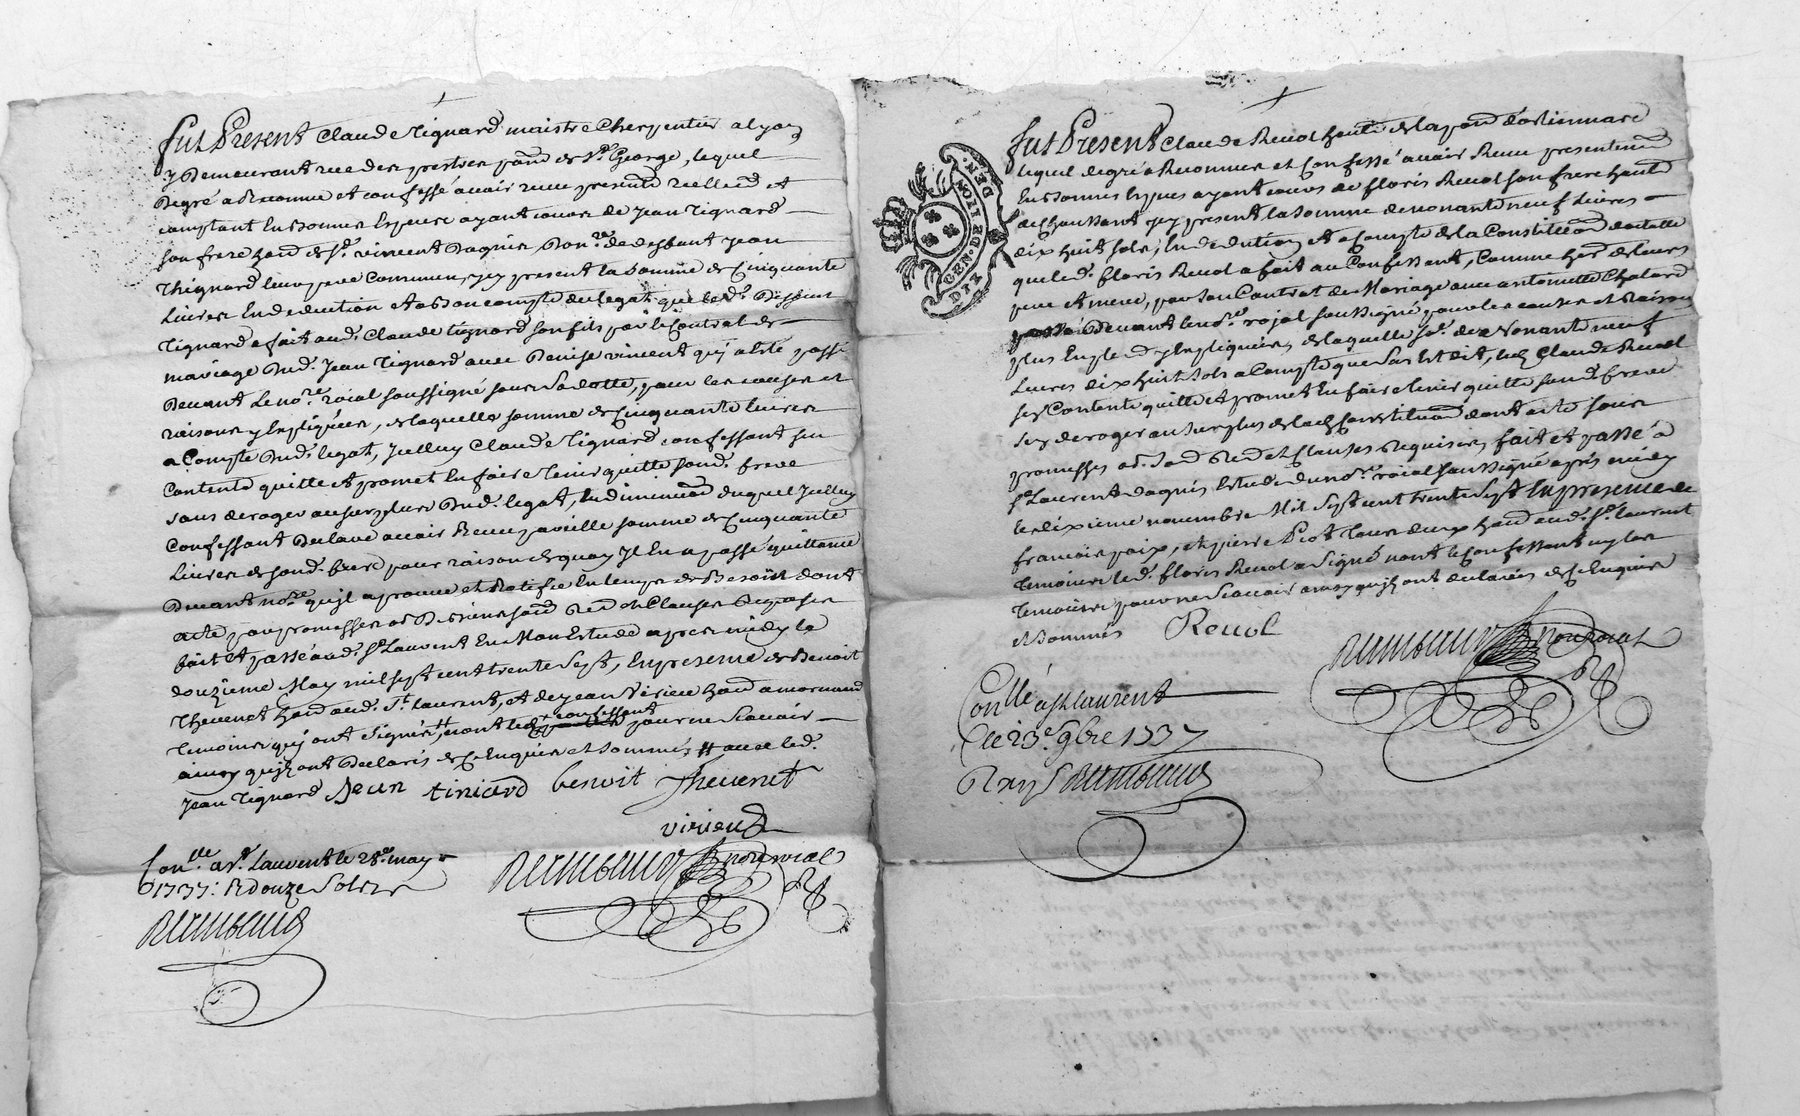 Fut Present Claude Tignard maistre Cherpentier a lyon
y Demeurant rue des prestres parr. de St. George, lequel
Degré a Reconnu et confessé avoir receu presentement reellement et
comptant En bonnes Especes ayant cours de Jean Tignard
son frere hand de St. vincent Dagnier, de deffunt Jean
Thignard leur pere Commun, icy present la somme de Cinquante
Livres En deduction et a bon compte du legat que led. Deffunt
Tignard a fait aud. Claude tignard son fils par le Contrat de
mariage Dud. Jean Tignard avec Denise vincent qui a esté passé
Devant Le nore. roial soussigné sous sa datte, pour les causes et
raisons y Expliquées, de laquelle somme de Cinquante livres
a Compte Dud. legat, Icelluy Claude Tignard confessant s'en
Contente quitte et promet En faire tenir quitte sond. frere
sans deroger au surplus Dud. legat, En diminution duquel Icelluy
Confessant Declare avoir Receu pareille somme de Cinquante
Livres de sond. frere pour raison de quoy Il En a passé quittance
Devant nore. qu'il aprouve et Ratifie En temps de Besoin dont
acte, par promesses et Clauses Requises
fait et passé aud. St Laurent En Mon Estude apres midy le
douzieme May mil sept cent trente sept, En presence de Benoit
Thevenet hand aud. St. laurent, et de Jean Virieu hand a mornand
Temoins qui ont signés, # non led. confessant pour ne sçavoir
ainsy qu'ils ont Declarés de ce Enquis et sommés # avec led.
Jean Tignard Jean tiniard benoit Thevenet
virieu
Conlle. a St. Laurent le 28e. may
1737: R douze Sols
Fut Present Claude Revol hand de la parr. d'
lequel degré a Reconnu et Confessé avoir Receu presentement
En bonnes Especes ayant cours de floris Revol son frere hand
de Chaussant icy present la somme de nonante neuf Livres
dix huit sols, En deduction et a Compte de la Constitution dotalle
que led. floris Revol a fait au Confessant, Comme her. de leurs
pere et mere, par son Contrat de Mariage avec antoinette Chatard
passé Devant le nore. rojal soussigné pour les causes et Raisons
plus Emplement y Expliquées, de laquelle se. de Nonante neuf
Livres dix huit sols a Compte que Sus Est dit, led. Claude Revol
s'en Contente quitte et promet En faire tenir quitte sond. frere
sans deroger au surplus de lad. Constitution dont acte sous
promesses et Clauses Requises, fait et passé a
St. Laurent dagnis Estude du nore. roial soussigné après midy
le dixieme novembre Mil sept cent trente sept En presence de
francois paix, et pierre Piot hand aud. St. laurent
Temoins led. floris Revol a signé non le Confessant ny les
Temoins pour ne sçavoir ainsy qu'ils ont declarés de ce Enquis
et sommés Revol
Conlle a St laurent
Ce 23e. 9bre 1737
GEN. DE LYON
DEN.
DIX